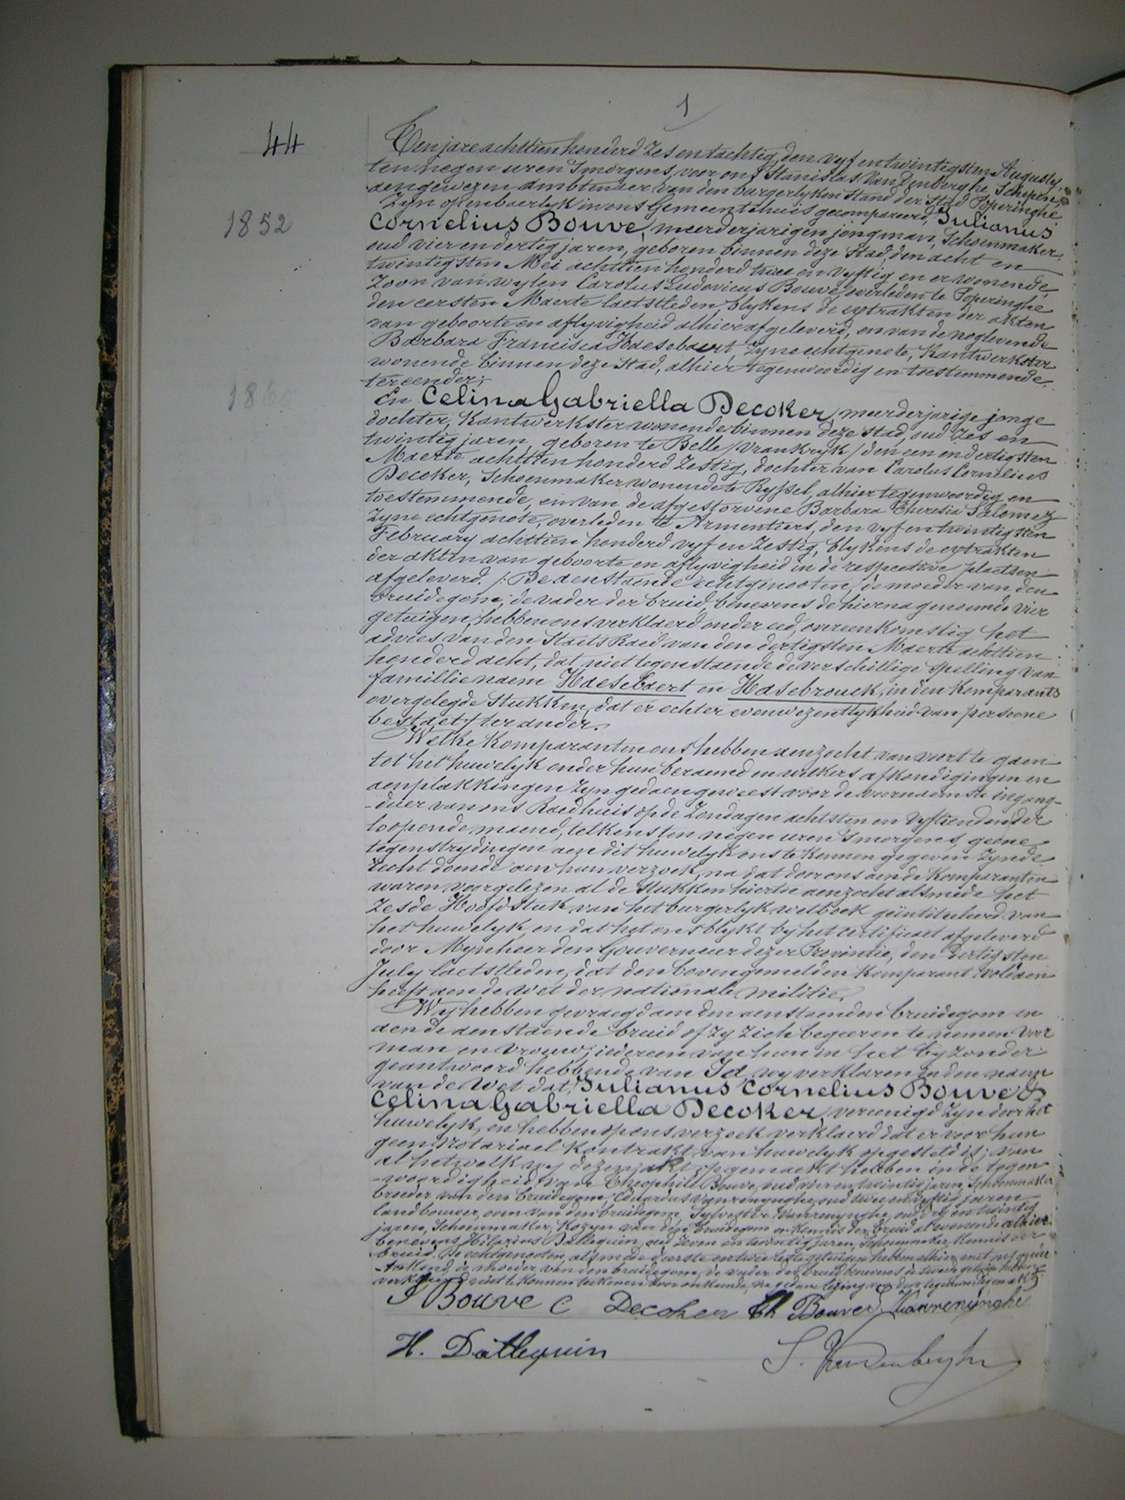 1
44
Ten jare achttien honderd zes en tachtig, den vyf en twintigsten Augusty,
ten negen uren smorgens, voor ons Stanislas Vandenberghe, Schepen,
aengewezen ambtenaer van den burgerlyken stand der Stad Poperinghe
Zyn openbaerlyk in ons Gemeentehuis gecompareerd Julianus
1852
Cornelius Bouve, meerderjarigen jongman, Schoenmaker,
oud vier en dertig jaren, geboren binnen deze Stad den acht en
twintigsten Mei achttien honderd twee en vyftig en er wonende,
Zoon van wylen Carolus Ludovicus Bouve, overleden te Poperinghe
den eersten Maerte laetstleden, blykens de extrakten der akten
van geboorte en aflyvigheid alhier afgeleverd, en van de noglevende
Barbara Francisca Haesebaert, zyne echtgenote, Kantwerkster
wonende binnen deze Stad, alhier tegenwoordig en toestemmende.
ter eender;
1860
En Celina Gabriella Decoker, meerderjarige jonge
dochter, Kantwerkster wonende binnen deze stad, oud zes en
twintig jaren, geboren te Belle /Vrankryk/ den een en dertigsten
Maerte achttien honderd zestig, dochter van Carolus Cornelius
Decoker, Schoenmaker wonende te Ryssel, alhier tegenwoordig en
toestemmende, en van de afgestorvene Barbara Theresia Salomez
zyne echtgenote, overleden te Armentiers, den vyf en twintigsten
February achttien honderd vyf en zestig, blykens de extrakten
der akten van geboorte en aflyvigheid in de respective plaetsen
afgeleverd. / De aenstaende echtgenooten, de moeder van den
bruidegom, de vader der bruid, benevens de hierna genoemde vier
getuigen, hebben ons verklaerd onder eed, overeenkomstig het
advies van den Staets Raed van den dertigsten Maerte achttien
honderd acht, dat niet tegenstaende de verschillige spelling van
famillie naem Haesebaert en Hasebrouck, in den Komparants
overgelegde Stukken, dat er echter evenwezentlykheid van persoone
bestaet / ter ander.
Welke Komparanten ons hebben aenzocht van voort te gaen
tot het huwelyk onder hun beraemd en wiekers afkondigingen en
aenplakkingen zyn gedaen geweest voor de voornaemste ingang-
-deur van ons Raedhuis op de Zondagen achtsten en vyftienden der
loopende maend, telkens ten negen uren smorgens, geene
tegenstrydingen aen dit huwelyk ons te kennen gegeven zynde
recht doende aen hun verzoek, na dat door ons aen de Komparanten
waren voorgelezen al de Stukken hiertoe aenzocht alsmede het
Zesde Hoofdstuk van het burgerlyk wetboek geïntituleerd van
het huwelyk, en dat het ons blykt by het certificaet afgeleverd
door Mynheer den Gouverneur dezer Provintie, den dertigsten
July laetstleden, dat den bovengemelden Komparant voldaen
heeft aen de wet der nationale militie.
Wy hebben gevraegd aen den aenstaenden bruidegom en
aen de aenstaende bruid of zy zich begeeren te nemen voor
man en vrouw; iedereen van hun in het byzonder
geantwoord hebbende van Ja, wy verklaren in den naem
van de Wet dat Julianus Cornelius Bouve &
Celina Gabriella Decoker, vereenigd zyn door het
huwelyk, en hebben op ons verzoek verklaerd dat er voor hun
geen Notariael Kontrakt van huwelyk opgesteld is; van
al hetwelk wy dezen akt opgemaekt hebben in de tegen-
-woordigheid van Theophiel Bouve, oud vier en twintig jaren, Schoenmaker
broeder van den bruidegom, Eduardus Vanrenynghe, oud twee en vyftig jaren
landbouwer, oom van den bruidegom, Sylvester Vanrenynghe, oud vyf en twintig
jaren, Schoenmaker, Kozyn van den bruidegom en kennis der bruid al wonende alhier
benevens Hilarius Datlequin, oud zeven en twintig jaren, Schoenmaker, kennis der
bruid. De echtgenooten, alsmede d'eerste en twee leste getuigen hebben alhier met ons getee-
-kend, de moeder van den bruidegom, de vader der bruid benevens de tweede getuige hebben
verklaerd niet te konnen teekenen door onkunde, na gedane lezing van den tegenwoordigen akt
J Bouve C Decoker Th Bouve S Vanrenynghe
H. Datlequin S. Vandenberghe